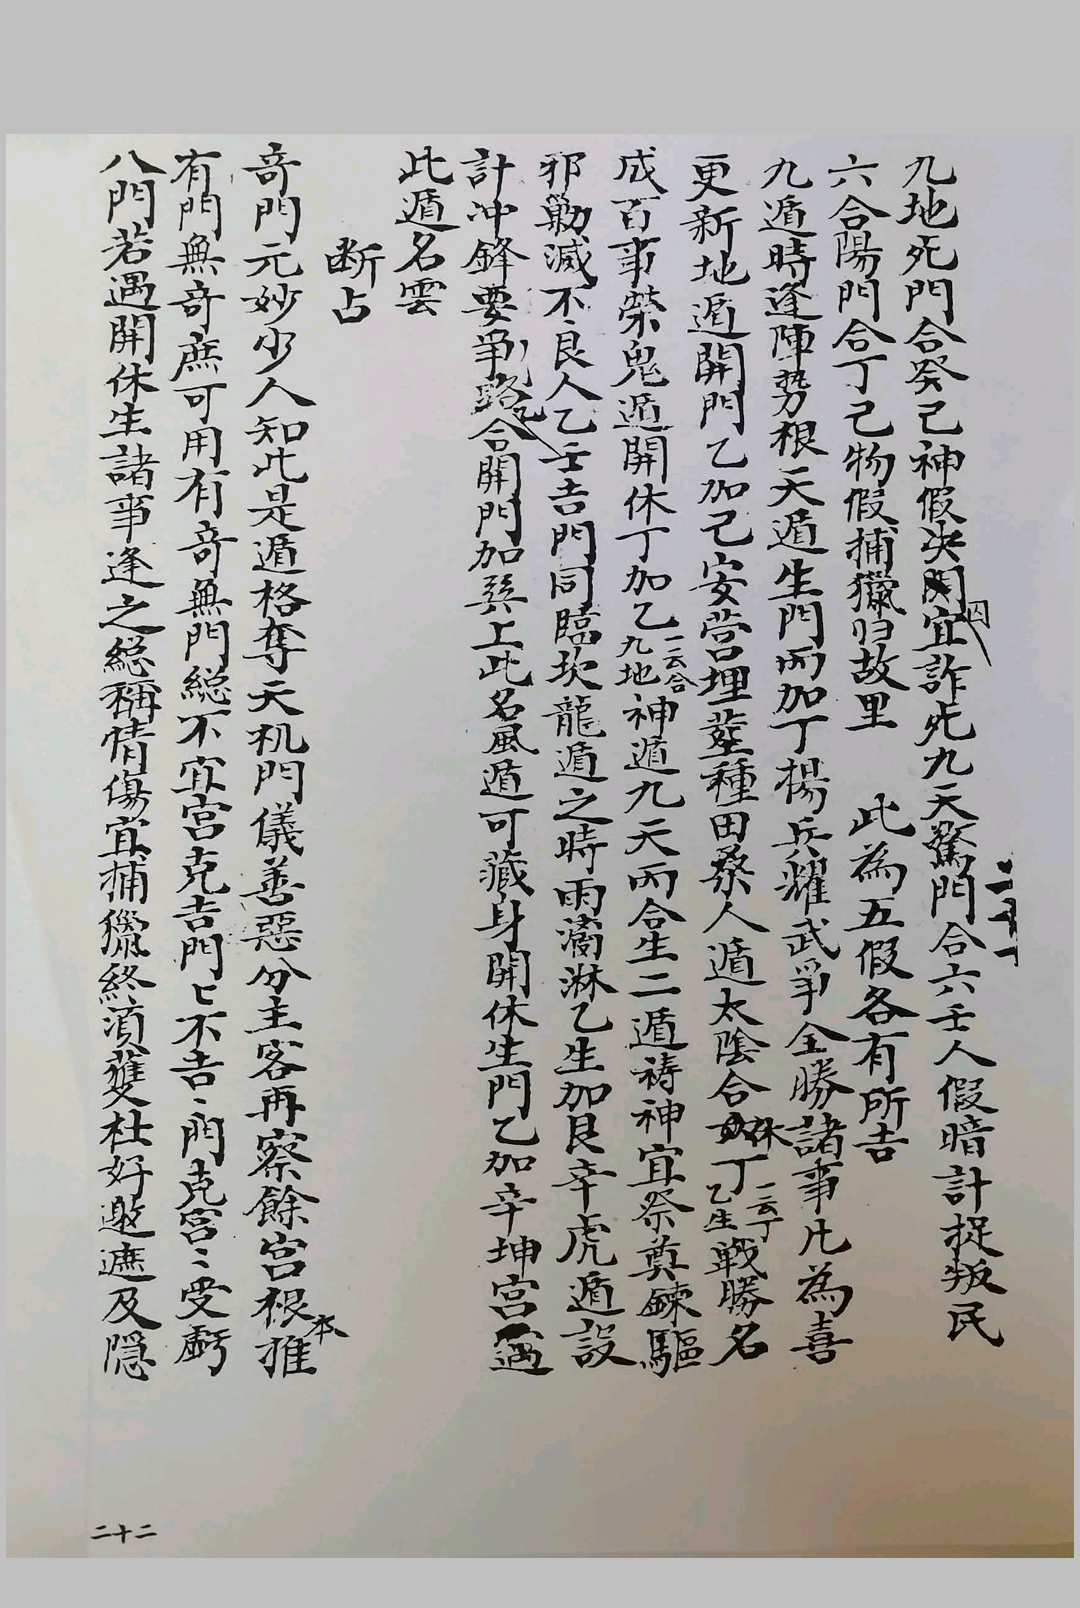 九地死門合癸己神假决囚宜詐死九天驚門合六壬人假暗計捉叛民
六合陽門合丁己物假捕獵归故里 此為五假各有所吉
九遁時逢陣势根天遁生門丙加丁揚兵耀武爭全勝諸事凡為喜
更新地遁開門乙加己安营埋塟種田桑人遁太陰合休丁一云丁乙生戦勝名
成百事荣鬼遁開休丁加乙一云合九地神遁九天丙合生二遁祷神宜祭奠鍊驅
邪勦滅不良人乙壬吉門同臨坎龍遁之時雨滴淋乙生加艮辛虎遁設
計冲鋒要爭路合開門加巽上此名風遁可藏身開休生門乙加辛坤宮遇
此遁名雲
断占
奇門元妙少人知此是遁格奪天机門儀善惡分主客再察餘宮根本推
有門無奇庶可用有奇無門総不宜宮克吉門匕不吉〻門克宮〻受虧
八門若遇開休生諸事逢之総稱情傷宜捕獵終湏獲杜好邀遮及隠
二十一
二十二